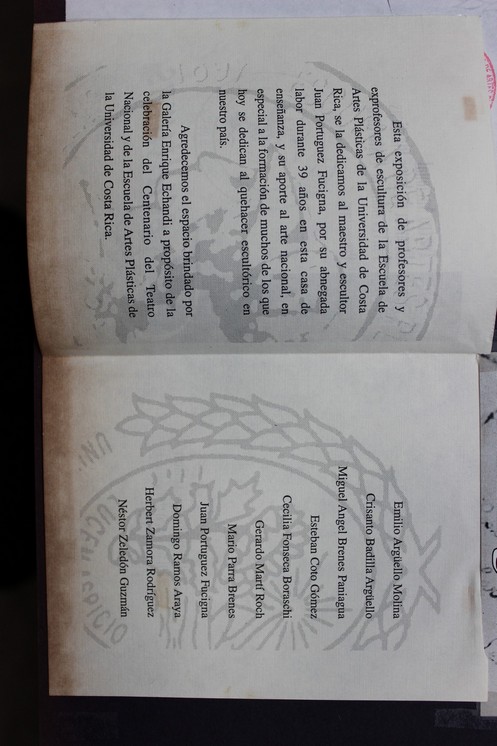 Esta exposición de profesores y
exprofesores de escultura de la Escuela de
Artes Plásticas de la Universidad de Costa
Rica, se la dedicamos al maestro y escultor
Juan Portuguez Fucigna, por su abnegada
labor durante 39 años en esta casa de
enseñanza, y su aporte al arte nacional, en
especial a la formación de muchos de los que
hoy se dedican al quehacer escultórico en
nuestro país.
Agredecemos el espacio brindado por
la Galería Enrique Echandi a propósito de la
celebración del Centenario del Teatro
Nacional y de la Escuela de Artes Plásticas de
la Universidad de Costa Rica.
Emilio Argüello Molina
Crisanto Badilla Argüello
Miguel Angel Brenes Paniagua
Esteban Coto Gómez
Cecilia Fonseca Boraschi
Gerardo Martí Roch
Mario Parra Brenes
Juan Portuguez Fucigna
Domingo Ramos Araya
Herbert Zamora Rodríguez
Néstor Zeledón Guzmán